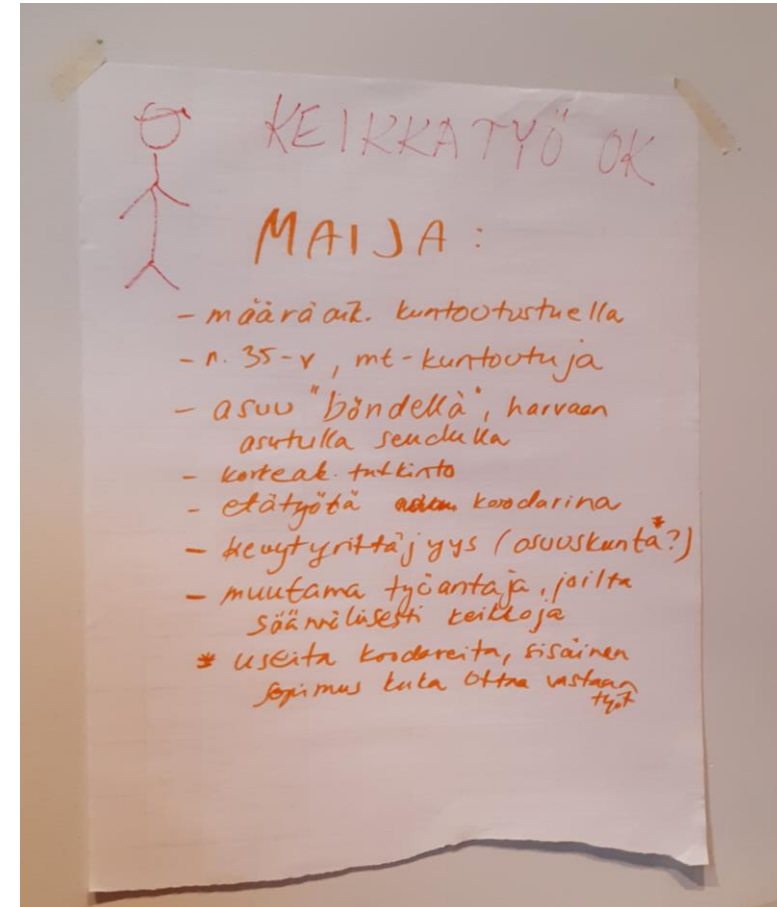 KEIKKATYÖ OK
MAIJA:
- määräaik. kuntoutustuella
- n. 35-v, mt-kuntoutuja
- asuu "böndellä", harvaan
asutulla seudulla
- korkeak. tutkinto
- etätyötä koodarina
- kevytyrittäjyys (osuuskunta*?)
- muutama työantaja, joilta
säännöllisesti keikkoja
* useita koodareita, sisäinen
sopimus kuka ottaa vastaan
työt